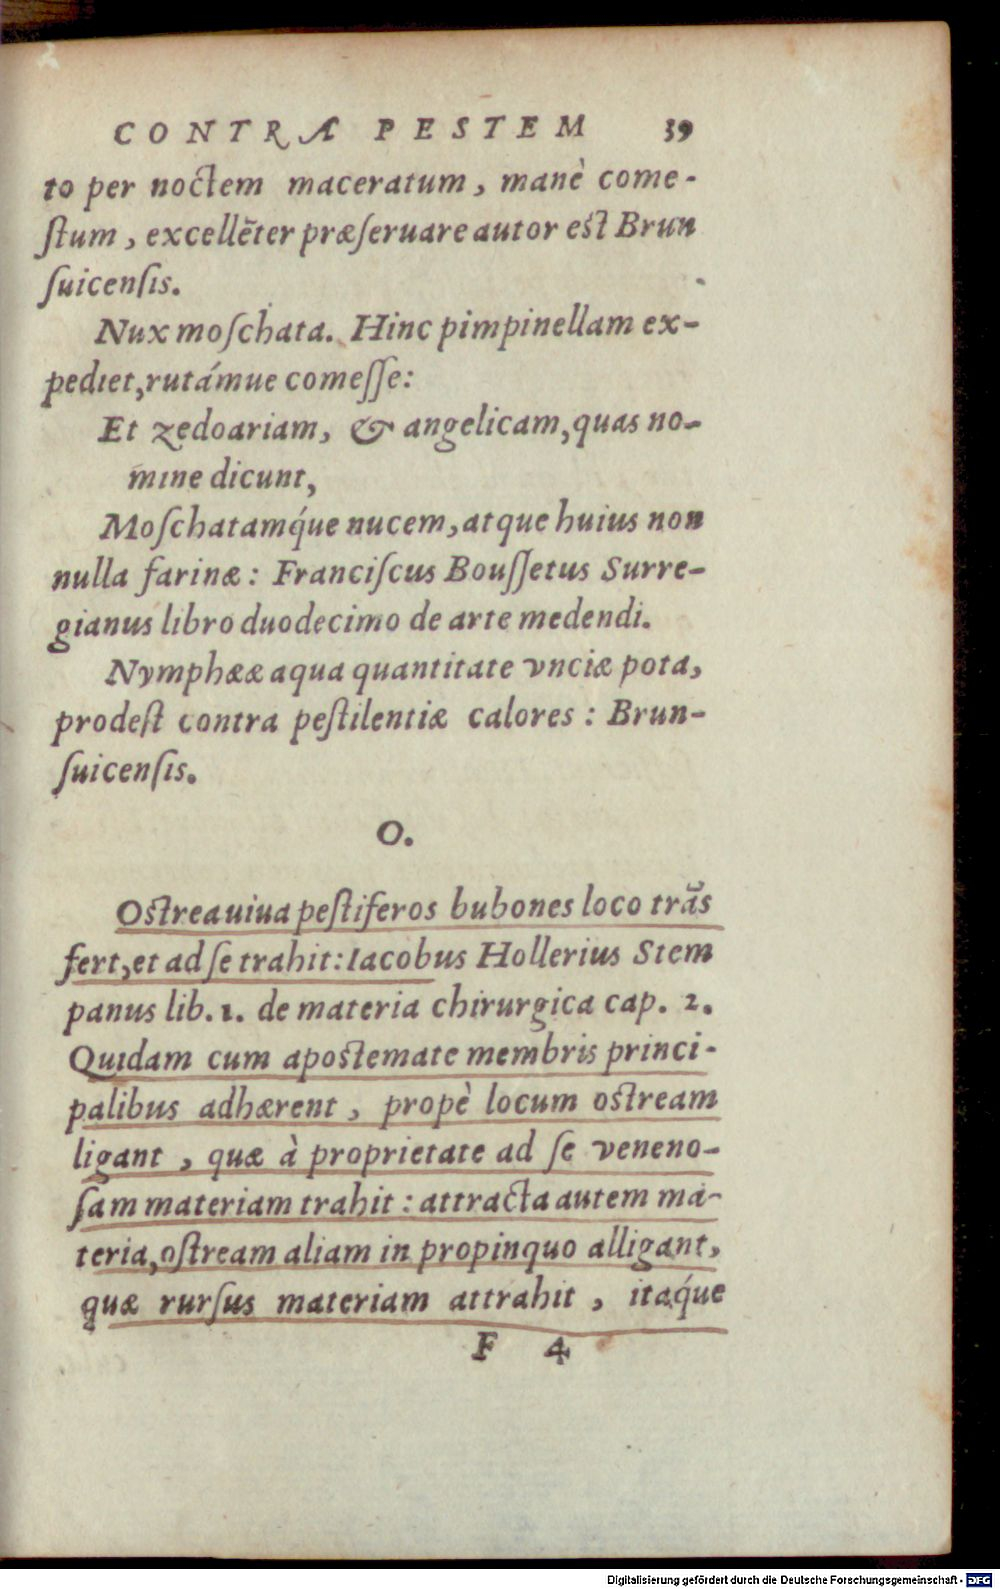 CONTRA PESTEM 39
to per noctem maceratum, manè come-
stum, excellẽter præseruare autor est Brun
suicensis.
Nux moschata. Hinc pimpinellam ex-
pediet, rutámue comesse:
Et zedoariam, & angelicam, quas no-
mine dicunt,
Moschatamq́ue nucem, atque huius non
nulla farinæ: Franciscus Boussetus Surre-
gianus libro duodecimo de arte medendi.
Nymphææ aqua quantitate vnciæ pota,
prodest contra pestilentiæ calores: Brun-
suicensis.
O.
Ostrea uiua pestiferos bubones loco trãs
fert, et ad se trahit: Iacobus Hollerius Stem
panus lib. 1. de materia chirurgica cap. 2.
Quidam cum apostemate membris princi-
palibus adhærent, propè locum ostream
ligant, quæ à proprietate ad se veneno-
sam materiam trahit: attracta autem ma-
teria, ostream aliam in propinquo alligant,
quæ rursus materiam attrahit, itaq́ue
F 4
Digitalisierung gefördert durch die Deutsche Forschungsgemeinschaft - DFG